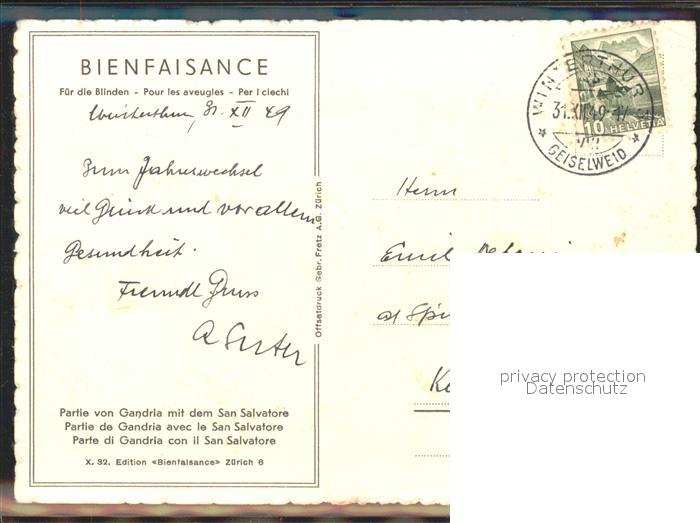 BIENFAISANCE
Für die Blinden - Pour les aveugles - Per i ciechi
Winterthur, 31. XII 49
Zum Jahreswechsel
viel Glück und vor allem
Gesundheit.
Freundl Gruss
A Suter
Partie von Gandria mit dem San Salvatore
Partie de Gandria avec le San Salvatore
Parte di Gandria con il San Salvatore
X. 32. Edition «Bienfaisance» Zürich 6
Offsetdruck Gebr. Fretz A.G. Zürich
WINTERTHUR
31.XII.49-17
GEISELWEID
10 HELVETIA
Herrn
Emil
privacy protection
Datenschutz